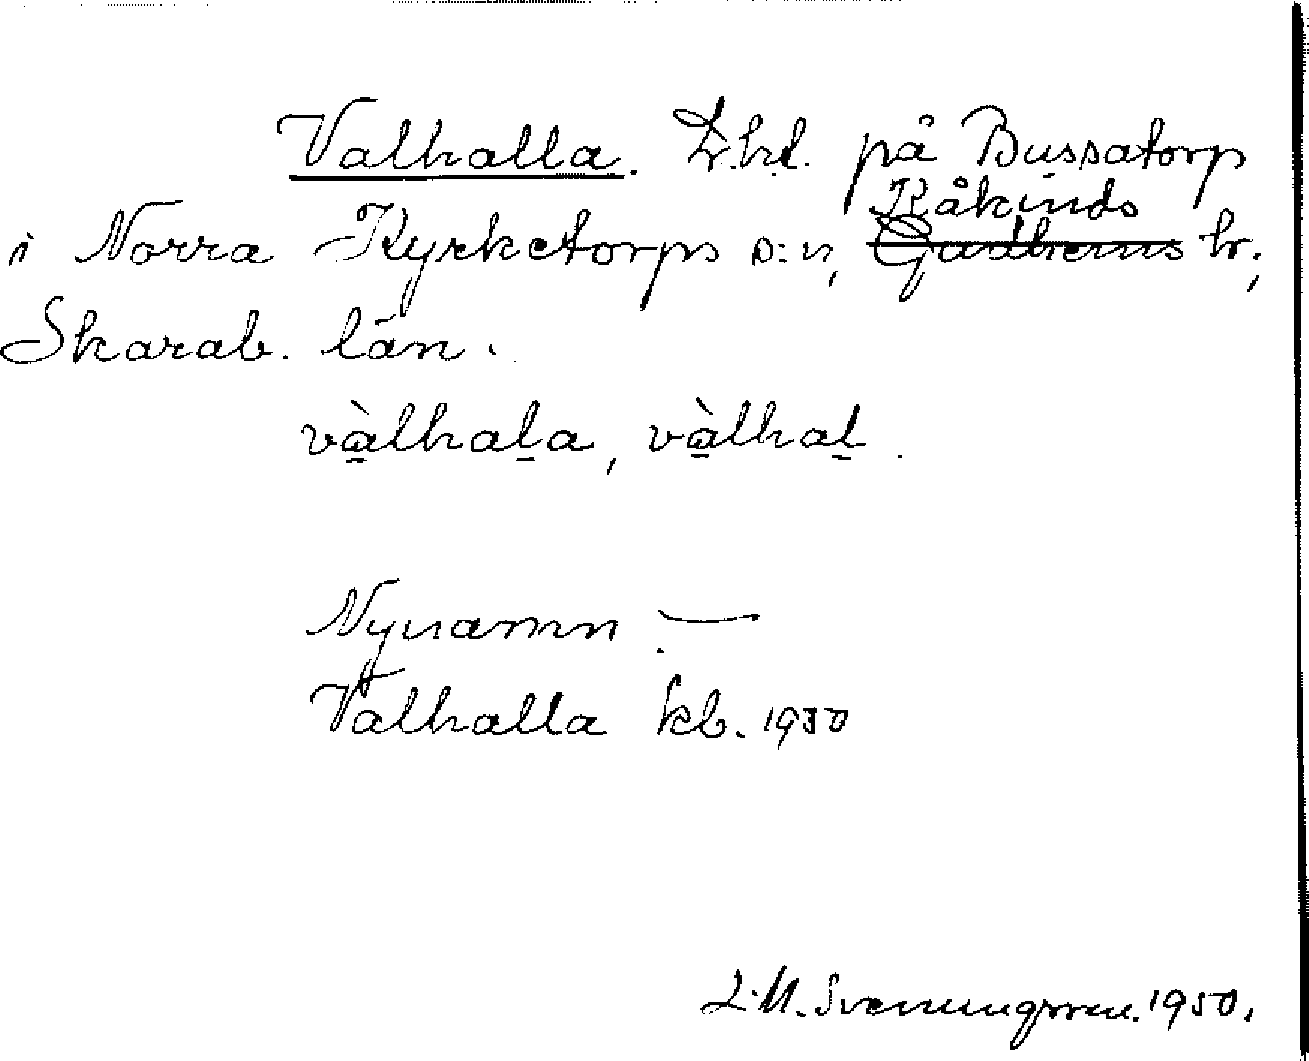 Valhalla. Lht. på Bussatorp
Kåkinds
i Norra Kyrketorps s:n, Gudhems hr;
Skarab. län.
vàlhala, vàlhal.
Nynamn. —
Valhalla kb. 1930
L.M. Svenungsson. 1950.